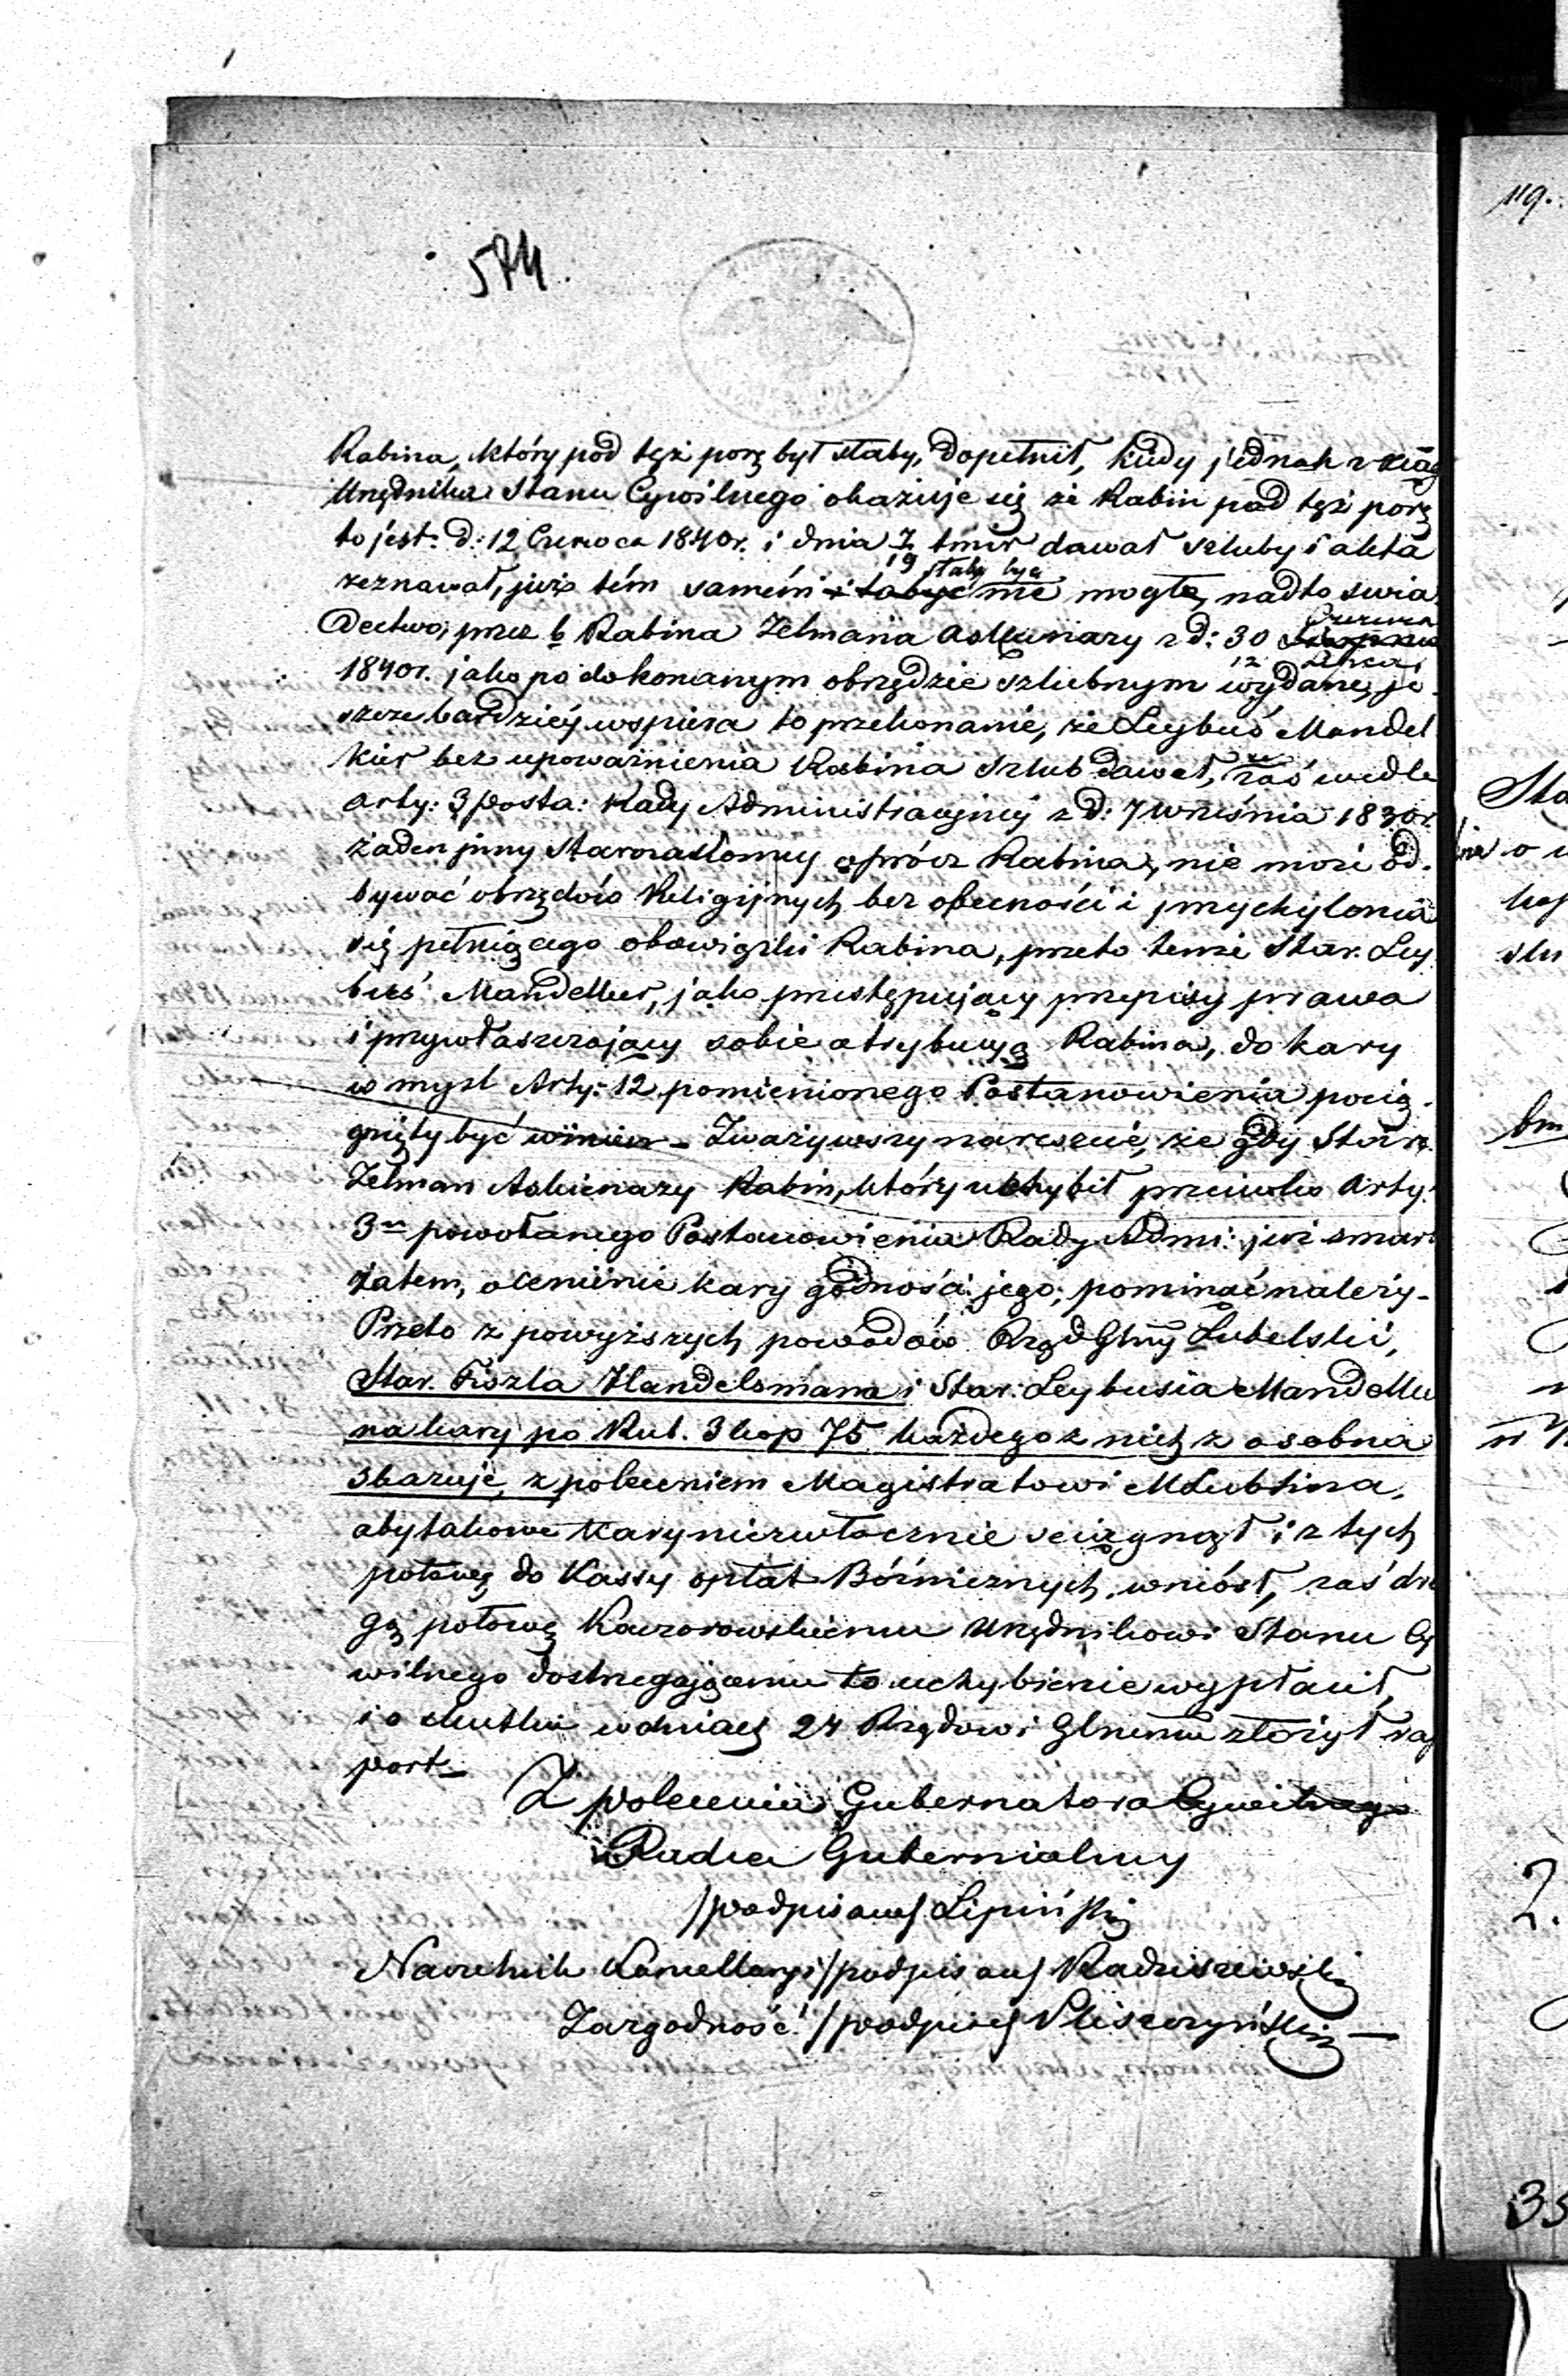 574.
Rabina, który pod tęż porę był słaby, dopełnił, kiedy jednak z xiąg
Urzędnika Stanu Cywilnego okazuje się że Rabin pod tęż porę
to jest: d: 12 Czerwca 1840r. i dnia 7/19 tmir dawał szluby i akta
zeznawał, już tém samém słaby być nie mogł, nadto swia
dectwo, przez b Rabina Zelmana Aszkenazy z d: 30 Czerwca
12 Lipca
1840r. jako po dokonanym obrzędzie szlubnym wydane, je
szcze bardziéj wspiera to przekonanie, że Leybuś Mandel
kier bez upoważnienia Rabina szlub dawał, zaś wedle
arty: 3 posta: Rady Administracyjnéj z d: 7 Września 1830r.
żaden jnny Starozakonny oprócz Rabina, nie może od.
bywać obrzędów Religijnych bez obecności i przychylenia
się pełniącego obowiązki Rabina, przeto tenże Star. Ley
buś Mandelker, jako przestępujący przepisy prawa
i przywłaszczający sobie atrybucyą Rabina, do kary
w mysl Arty: 12 pomienionego Postanowienia pocią.
gnięty być winien – Zważywszy nareszcie, że gdy Starz.
Zelman Askienazy Rabin, który uchybił przeciwko Arty:
3mu powołanego Postanowienia Rady Admi: już smarł
zatem, ocenienie kary godności jego, pominąć należy –
Przeto z powyższych powodów Rząd Glny Lubelski,
Star. Fiszla Handelsmana i Star: Leybusia Mandelke
na kary po Rub. 3 kop 75 każdego z nich z osobna
skazuje, z poleceniem Magistratowi M Lublina,
aby takowe kary niezwłocznie sciągnął i z tych
połowę do Kassy opłat Bóżnicznych wniósł, zaś dru
gą połowę Kaczorowskiemu Urzędnikowi Stanu Cy
wilnego dostrzegającemu to uchybienie wypłacił,
i o skutku w dniach 24 Rządowi Glnemu złożył rap
port –
Z polecenia Gubernatora Cywilnego
Radca Gubernialny
/podpisano/ Lipiński
Naczelnik Kancellaryi /podpisano/ Radziszewski
Za zgodność /podpis/ Pliszczyński –
119.
Sta
o
kop
slu
2.
35